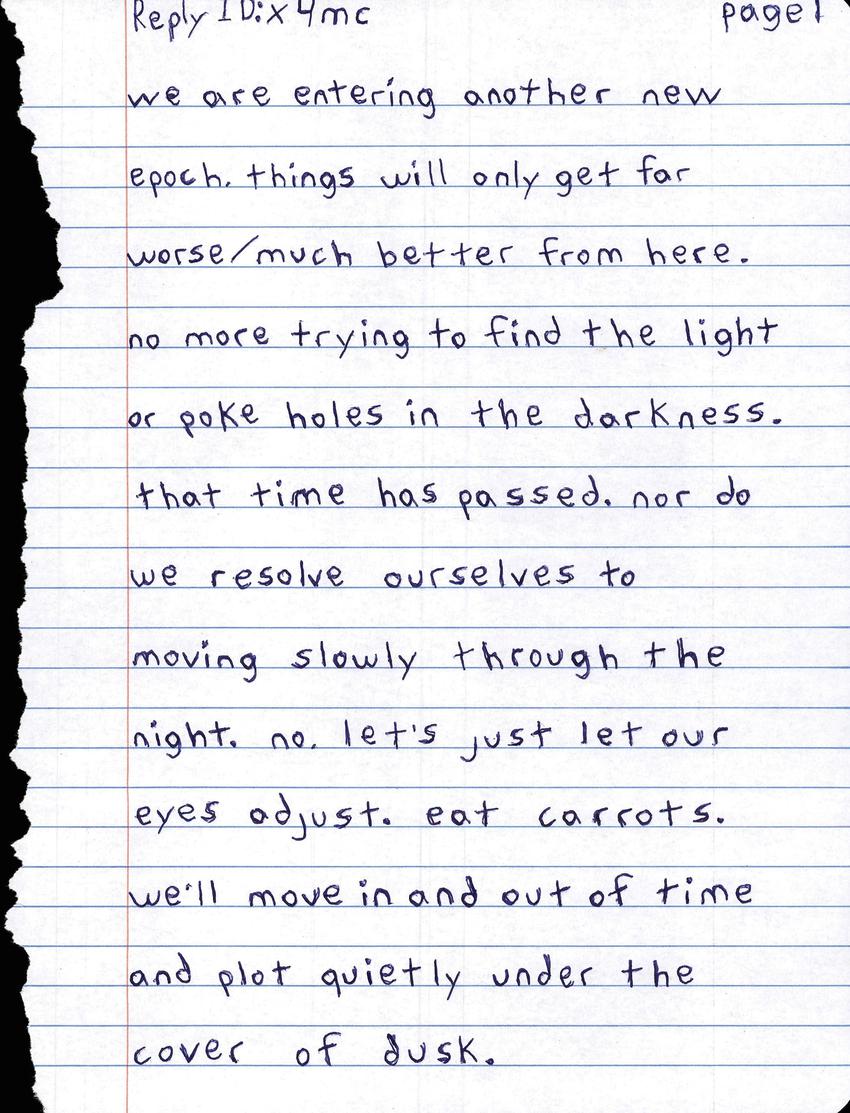 Reply ID: x4mc page 1
we are entering another new
epoch. things will only get far
worse/much better from here.
no more trying to find the light
or poke holes in the darkness.
that time has passed. nor do
we resolve ourselves to
moving slowly through the
night. no. let's just let our
eyes adjust. eat carrots.
we'll move in and out of time
and plot quietly under the
cover of dusk.